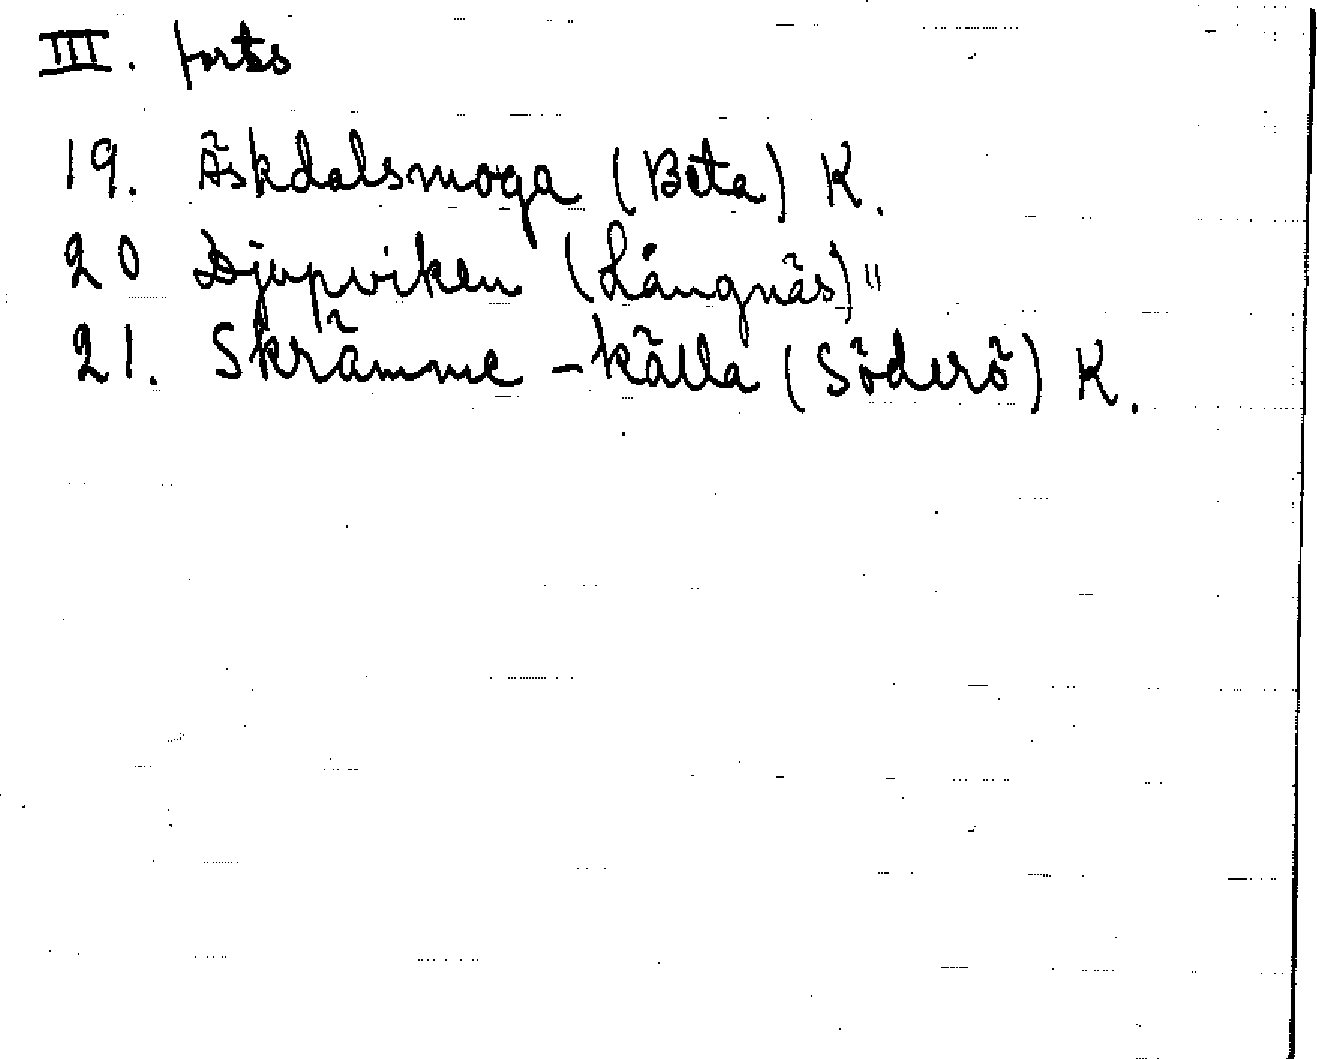 III. forts
19. Äskdalsmoga (Beta) K.
20 Djupviken (Långnäs) "
21. Skrämme-källa (Söderö) K.